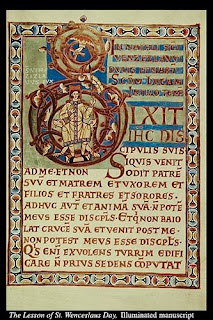 D IXIT
IHC DIS
CIPVLIS SVIS
SIQVIS VENIT
AD ME·ET NON ODIT PATRĒ
SVV̄ ET MATREM ET VXOREM ET
FILIOS ET FRATRES ET SORORES·
ADHVC AVT̄ ET ANIMĀ SVĀ·N̄ POTĒ
MEVS ESSE DISCPL̄S·ET Q̄ NON BAIO
LAT CRVCĒ SVĀ ET VENIT POST ME·
NON POTEST MEVS ESSE DISCPL̄S·
QS ENĪ EX VOLENS TVRRIM EDIFI
CARE N̄ PRIVS SEDENS CŌPVTAT
The Lesson of St. Wencerlaus Day, Illuminated manuscript